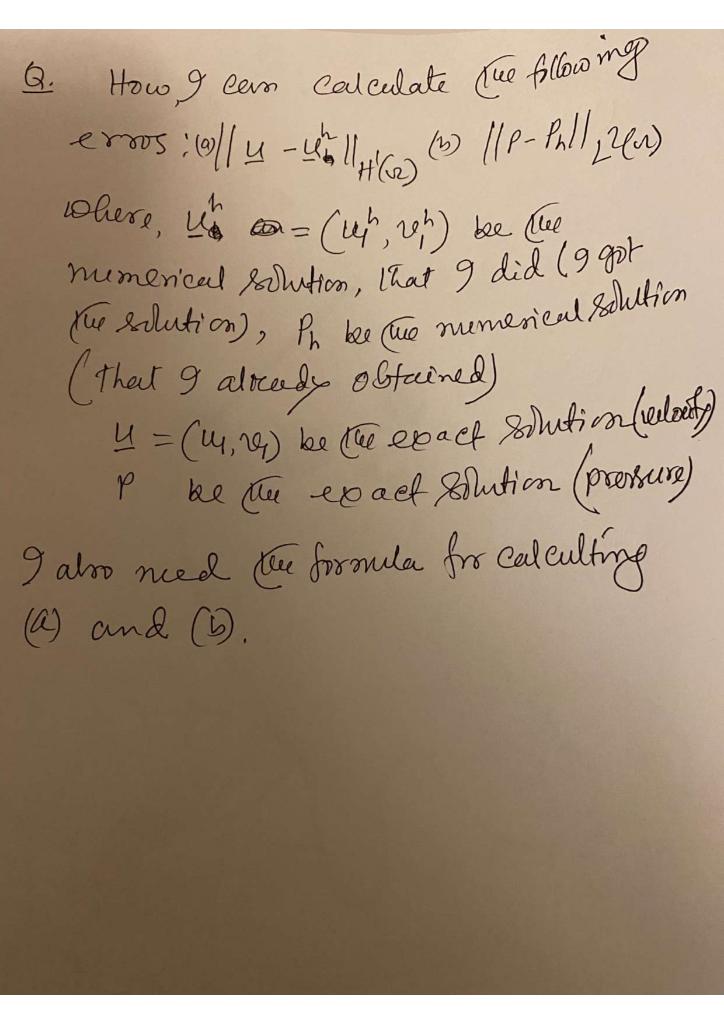 Q. How I can calculate the following
erros : (a) || u - u^h ||_H'(Ω) (b) ||P - Ph||_L²(Ω)
where, u^h = (u₁^h, v₁^h) be the
numerical solution, that I did (I got
the solution), Ph be the numerical solution
(that I already obtained)
u = (u₁, v₁) be the exact solution (velocity)
P be the exact solution (pressure)
I also need the formula for calculting
(a) and (b).